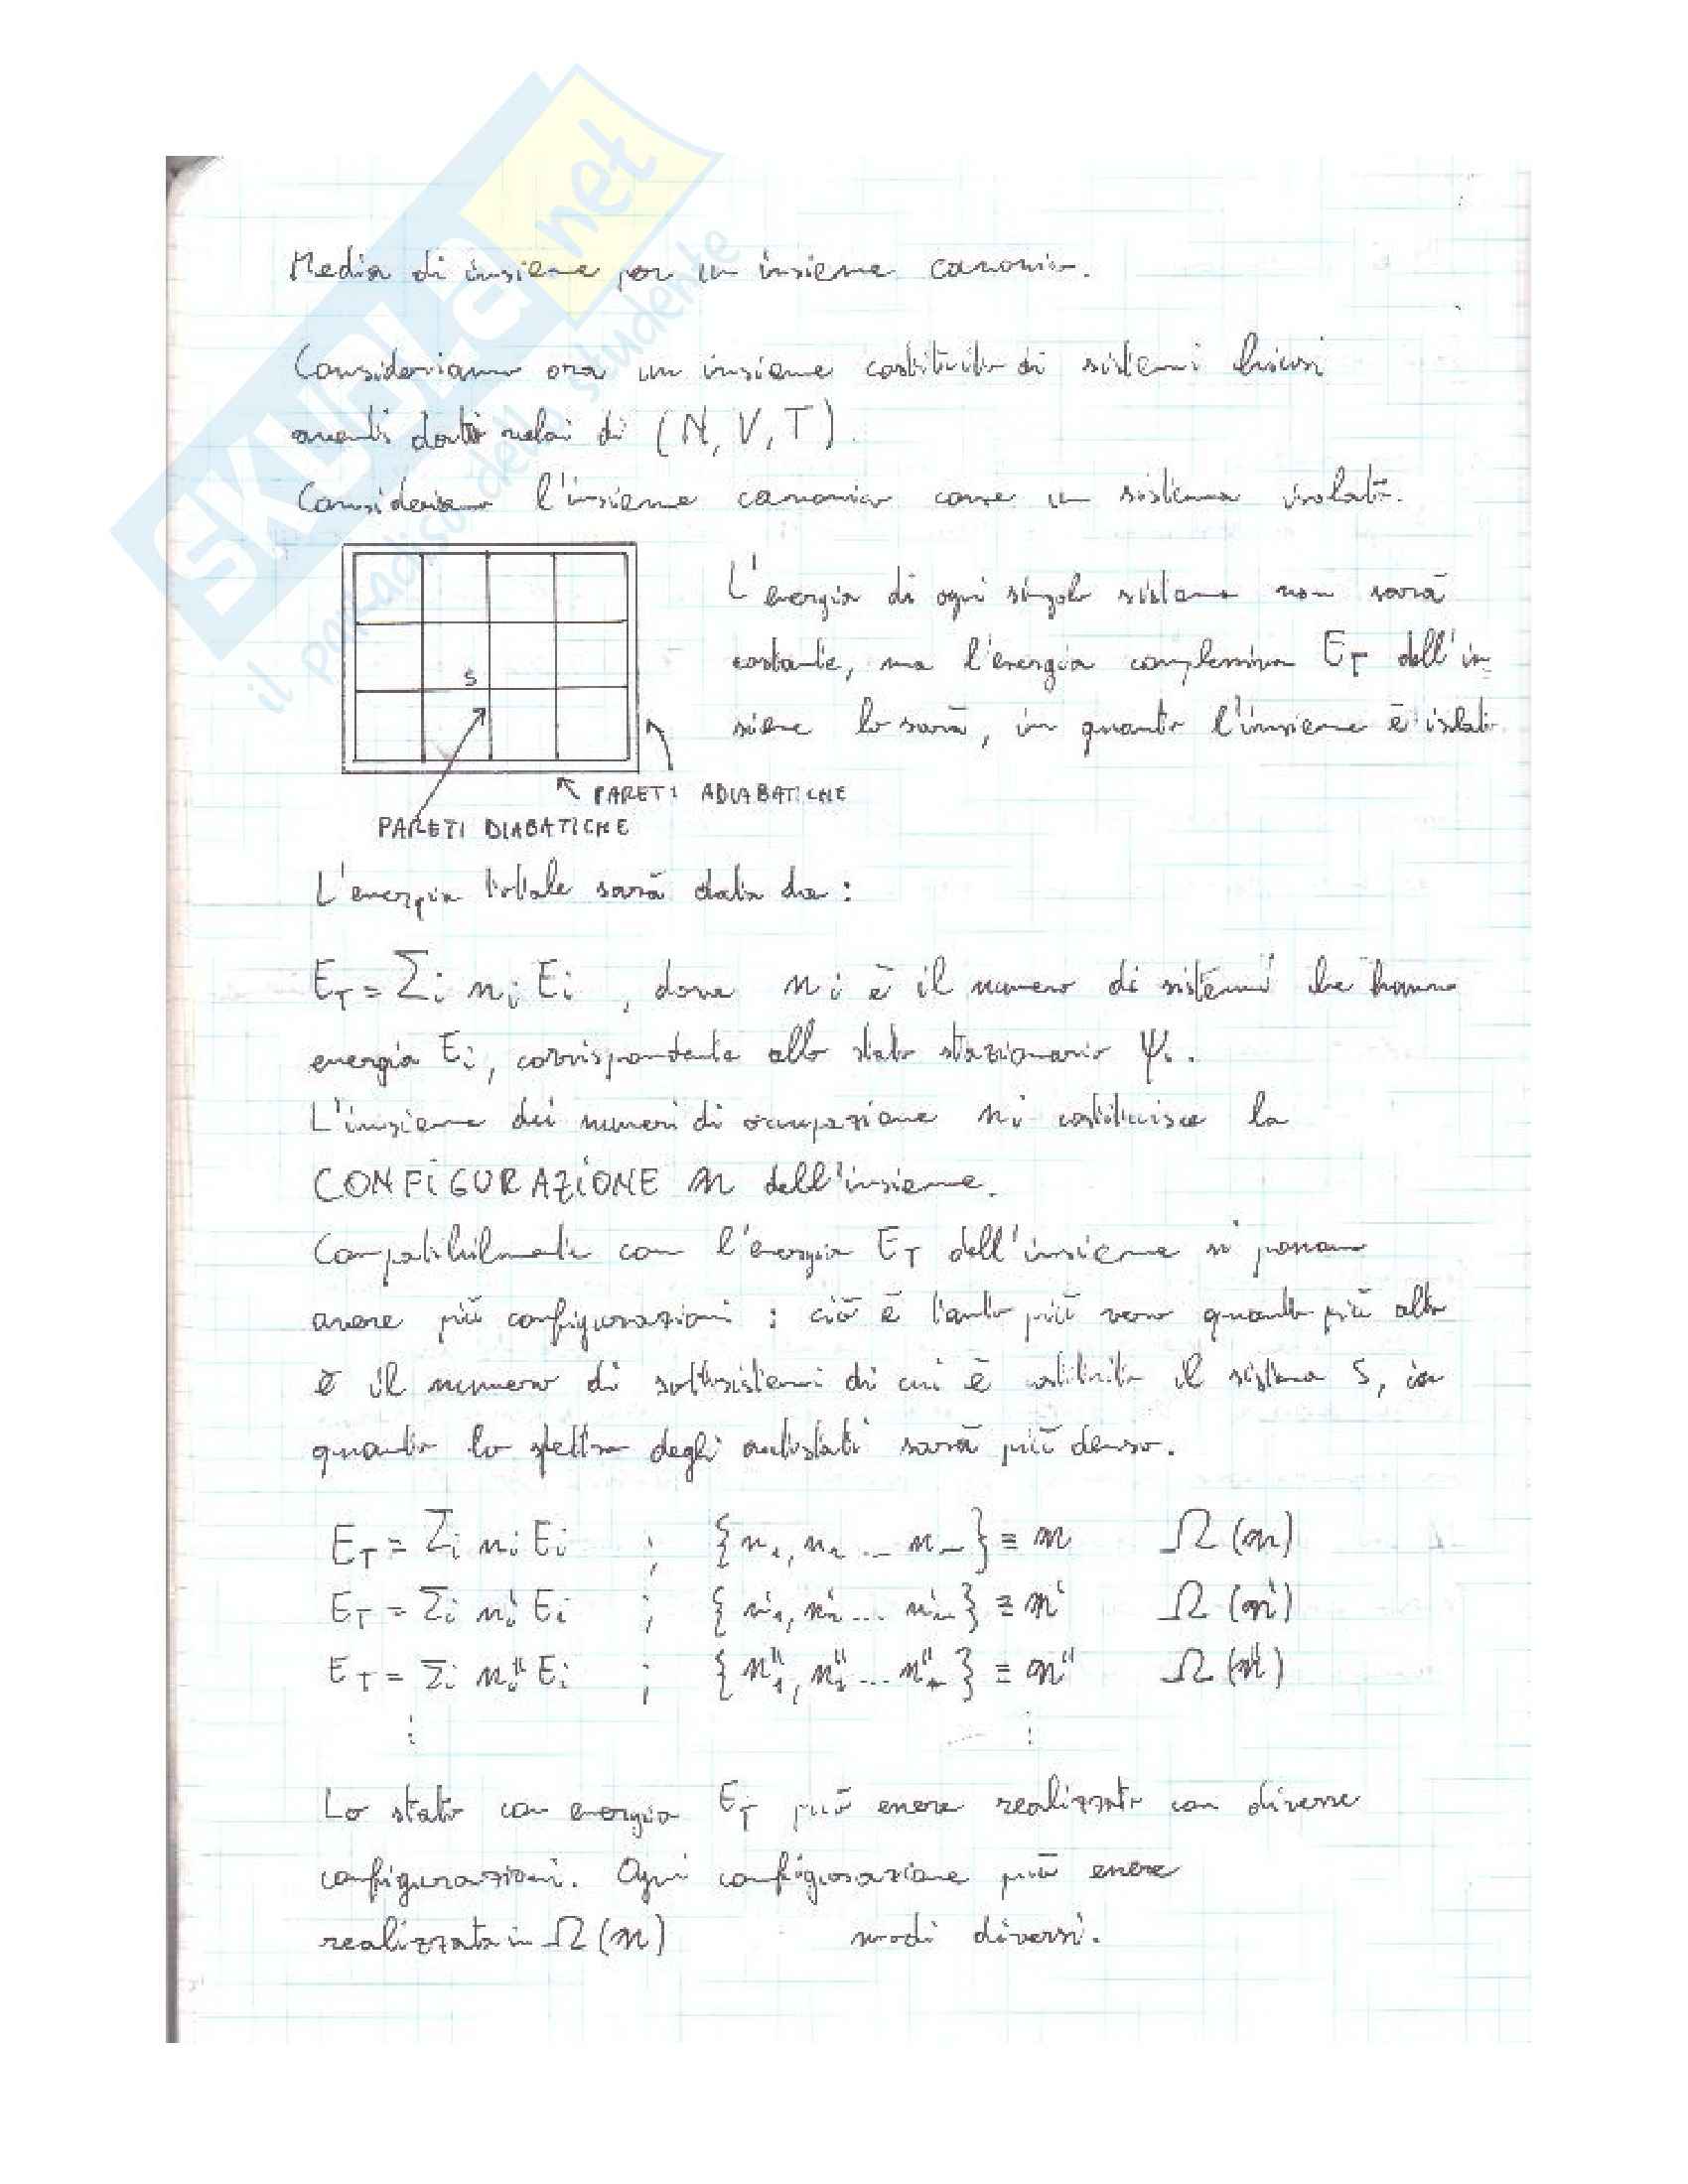 SKUOLA.net
il paradiso dello studente
Media di insieme per un insieme canonico.
Consideriamo ora un insieme costituito di sistemi chiusi
aventi dati valori di (N, V, T).
Consideriamo l'insieme canonico come un sistema isolato.
L'energia di ogni singolo sistema non sarà
costante, ma l'energia complessiva E_T dell'in-
sieme lo sarà, in quanto l'insieme è isolato.
S
PARETI ADIABATICHE
PARETI DIABATICHE
L'energia totale sarà data da:
E_T = Σ_i n_i E_i , dove n_i è il numero di sistemi che hanno
energia E_i, corrispondente allo stato stazionario Ψ_i.
L'insieme dei numeri di occupazione n_i costituisce la
CONFIGURAZIONE n dell'insieme.
Compatibilmente con l'energia E_T dell'insieme si possono
avere più configurazioni : ciò è tanto più vero quanto più alto
è il numero di sottosistemi di cui è costituito il sistema S, in
quanto lo spettro degli autostati sarà più denso.
E_T = Σ_i n_i E_i ; {n_1, n_2 ... n_} ≡ n Ω(n)
E_T = Σ_i n'_i E_i ; {n'_1, n'_2 ... n'_} ≡ n' Ω(n')
E_T = Σ_i n''_i E_i ; {n''_1, n''_2 ... n''_} ≡ n'' Ω(n'')
⋮ ⋮
Lo stato con energia E_T può essere realizzato con diverse
configurazioni. Ogni configurazione può essere
realizzata in Ω(n) modi diversi.